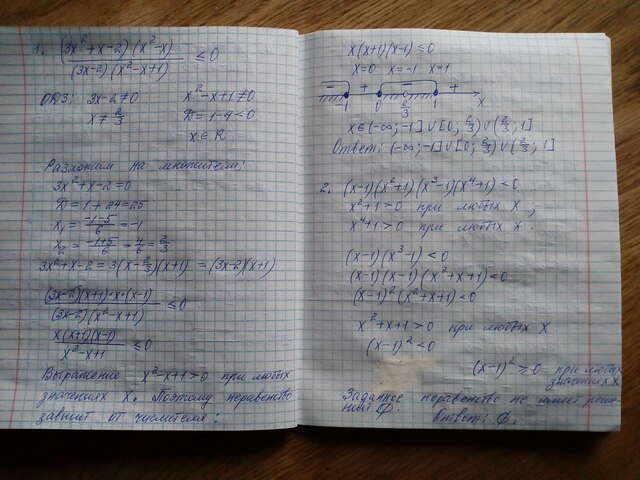 1. (3x²+x-2)(x²-x) / (3x-2)(x²-x+1) ≤ 0
ОДЗ: 3x-2≠0 x²-x+1≠0
x≠2/3 D=1-4<0
x∈R
Разложим на множители:
3x²+x-2=0
D=1+24=25
x₁=(-1-5)/6=-1
x₂=(-1+5)/6=4/6=2/3
3x²+x-2=3(x-2/3)(x+1)=(3x-2)(x+1)
(3x-2)(x+1)·x·(x-1) / (3x-2)(x²-x+1) ≤ 0
x(x+1)(x-1) / x²-x+1 ≤ 0
Выражение x²-x+1>0 при любых
значениях x. Поэтому неравенство
зависит от числителя:
x(x+1)(x-1)≤0
x=0 x=-1 x=1
- + - +
-1 0 2/3 1 x
x∈(-∞;-1]∪[0;2/3)∪(2/3;1]
Ответ: (-∞;-1]∪[0;2/3)∪(2/3;1]
2. (x-1)(x²+1)(x³-1)(x⁴+1)<0
x²+1>0 при любых x;
x⁴+1>0 при любых x.
(x-1)(x³-1)<0
(x-1)(x-1)(x²+x+1)<0
(x-1)²(x²+x+1)<0
x²+x+1>0 при любых x
(x-1)²<0
(x-1)²≥0 при любых
значениях x
Заданное неравенство не имеет реше-
ний Ø.
Ответ: Ø.